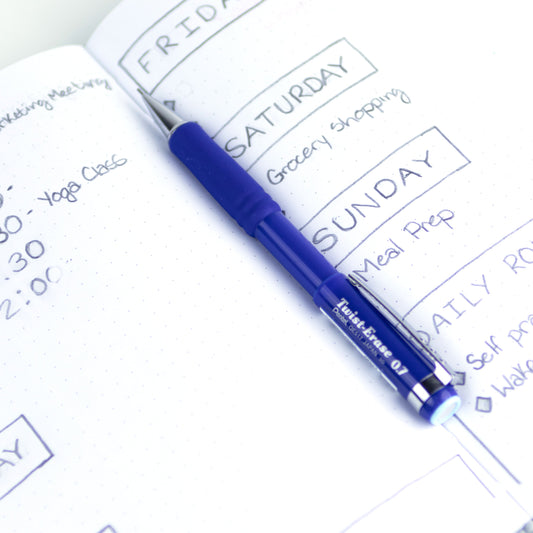 Marketing Meeting
30 - Yoga Class
.30
2:00
AY
FRIDAY
SATURDAY
Grocery Shopping
SUNDAY
Meal Prep
DAILY RO
Self pra
Wake
Twist-Erase 0.7
Pentel